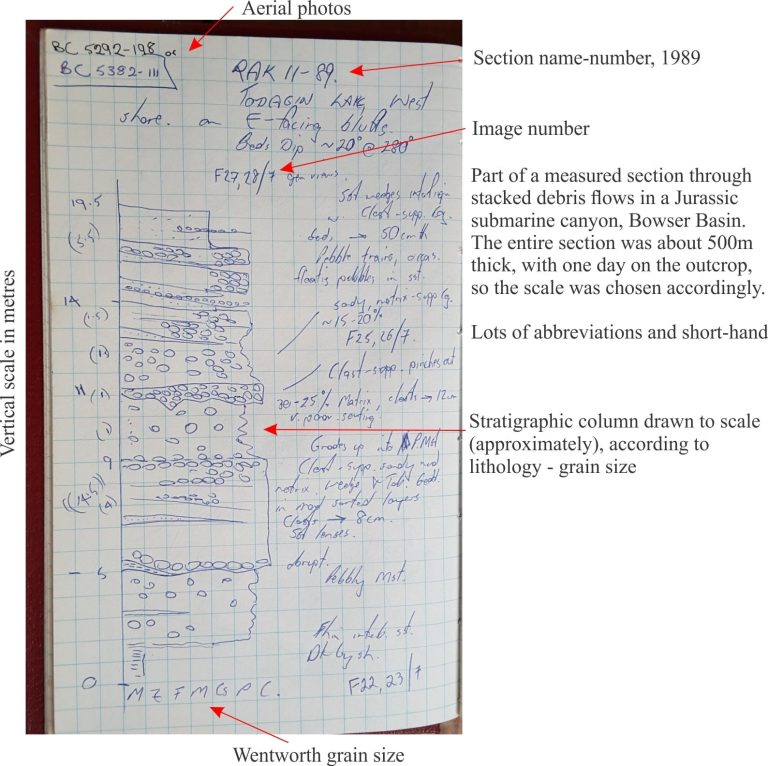 Aerial photos
BC 5292-198 or
BC 5382-111
RAK 11-89.
Section name-number, 1989
TODAGIN LAKE, West
shore. on E-facing bluffs.
Beds Dip ~20° @ 280°
Image number
F27,28/7 gen views.
Part of a measured section through
stacked debris flows in a Jurassic
submarine canyon, Bowser Basin.
The entire section was about 500m
thick, with one day on the outcrop,
so the scale was chosen accordingly.
Lots of abbreviations and short-hand
19.5
Sst wedges
Clast-supp. Cg.
(5.5)
beds → 50cmth
Pebble trains, occas.
floating pebbles in sst.
14
sandy, matrix-supp Cg.
~15-20%
(1.5)
F25,26/7.
(1)
Clast-supp. pinches out
11 (1)
20-25% Matrix, clasts → 12cm
v. poor-sorting
Stratigraphic column drawn to scale
(approximately), according to
lithology - grain size
Grades up into P.Mst
9
Clast-supp. sandy mud
matrix. Wedge & Tab. bedd.
in most sorted layers
(4)
Clasts → 8cm.
Sst lenses.
abrupt.
5
Pebbly Mst.
Thin interb. sst.
Dk Gy sh.
0
M Z F M C G P C.
F22,23/7
Vertical scale in metres
Wentworth grain size